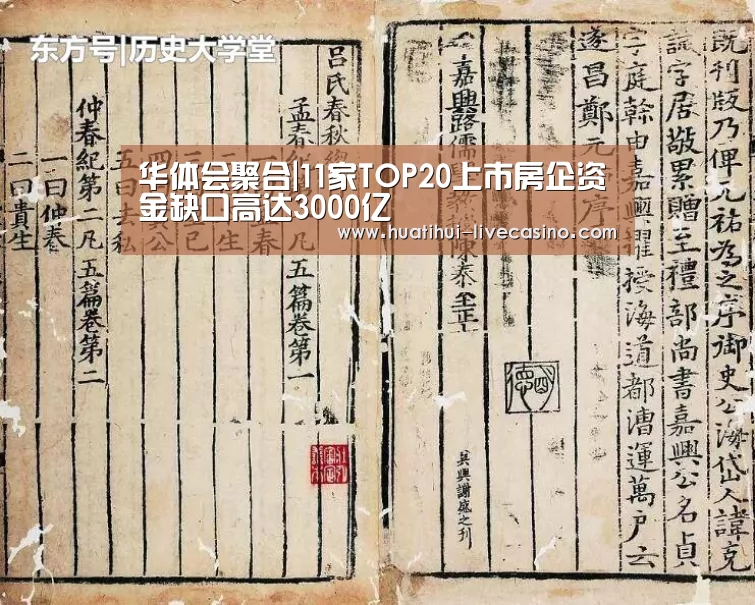 东方号|历史大学堂
华体会聚合|11家TOP20上市房企资
金缺口高达3000亿
www.huatihui-livecasino.com
既刊版乃俾元祐為之序御史公海岱人諱克
誠字居敬累贈至禮部尚書嘉興公名貞
字庭幹由嘉興擢授海道都漕運萬戶云
遂昌鄭元 序
嘉興路儒 陳泰至正
吳興謝盛之刊
呂氏春秋
孟春 凡 五篇卷第一
仲春紀第二凡 五篇卷第二
一曰仲春
二曰貴生